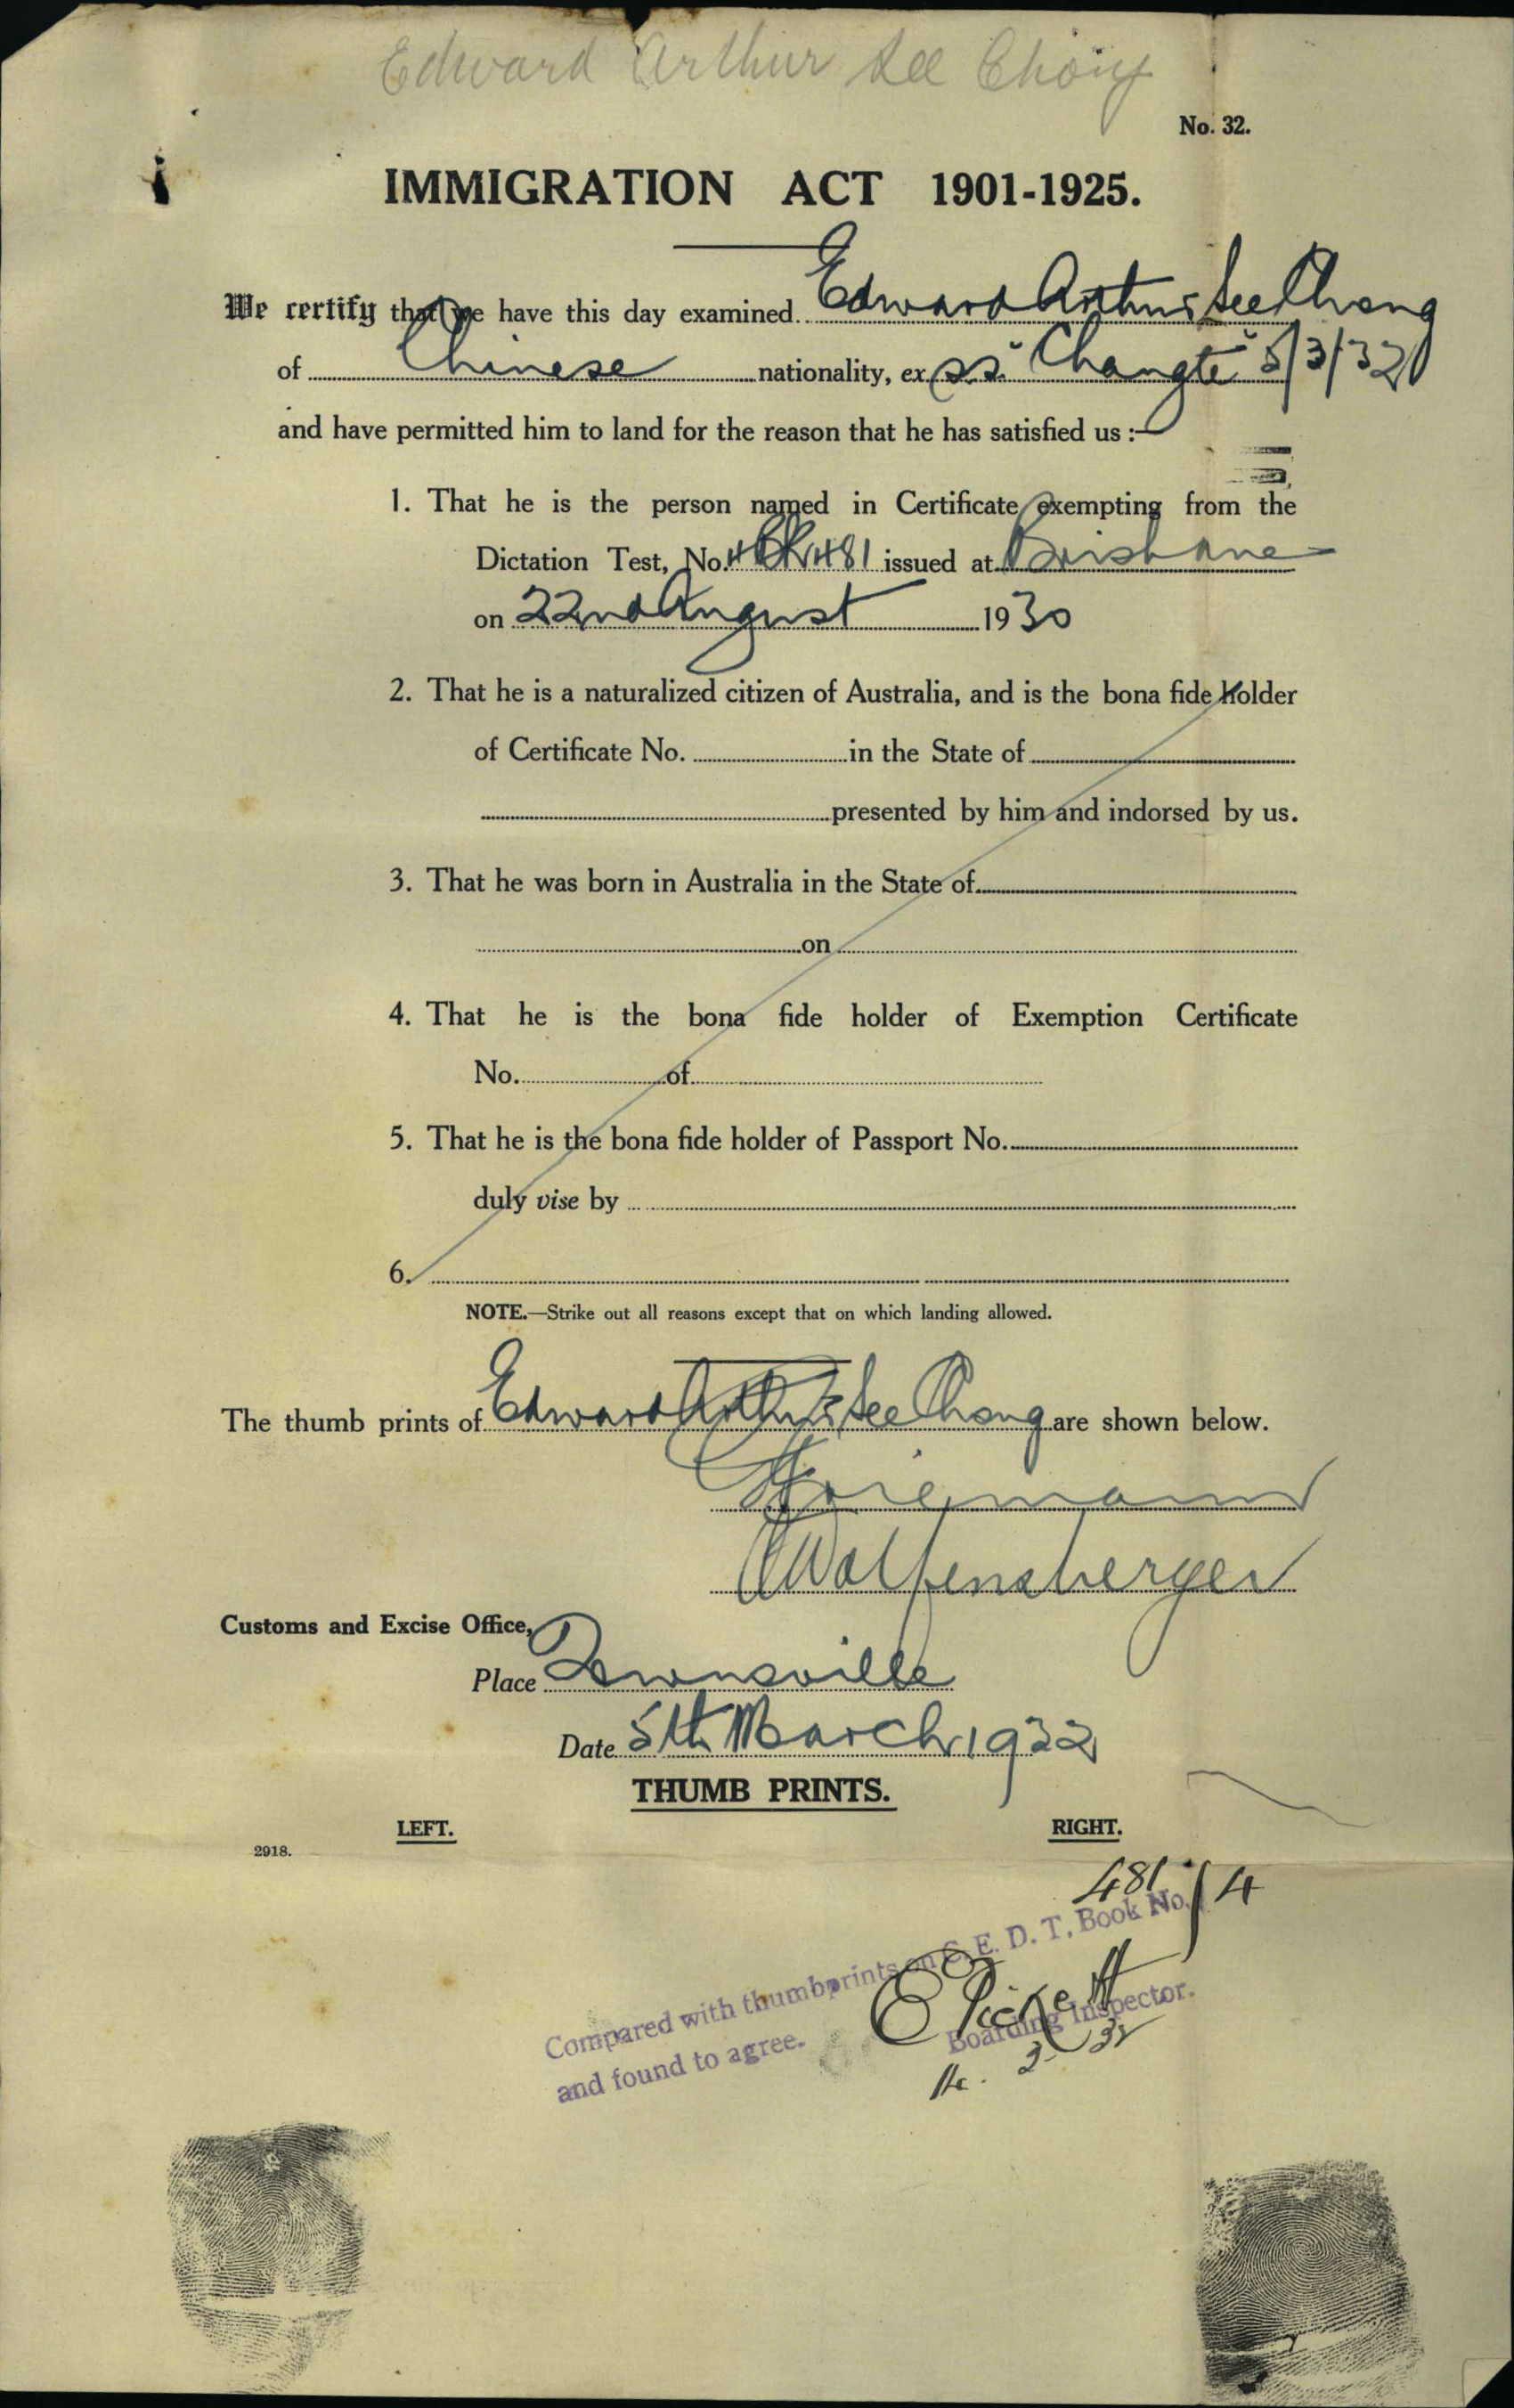 Edward Arthur See Chong
No. 32.
IMMIGRATION ACT 1901-1925.
We certify that we have this day examined Edward Arthur See Chong
of Chinese nationality, ex s.s. "Changte" 5/3/32
and have permitted him to land for the reason that he has satisfied us :—
1. That he is the person named in Certificate exempting from the
Dictation Test, No. 481 issued at Brisbane
on 22nd August 1930
2. That he is a naturalized citizen of Australia, and is the bona fide holder
of Certificate No. in the State of
presented by him and indorsed by us.
3. That he was born in Australia in the State of
on
4. That he is the bona fide holder of Exemption Certificate
No. of
5. That he is the bona fide holder of Passport No.
duly vise by
6.
NOTE.—Strike out all reasons except that on which landing allowed.
The thumb prints of Edward Arthur See Chong are shown below.
Wolfensberger
Customs and Excise Office,
Place Townsville
Date 5th March 1932
THUMB PRINTS.
LEFT. RIGHT.
2918.
481/4
Compared with thumbprints on C. E. D. T. Book No.
and found to agree.
E Pickett
Boarding Inspector.
3 32